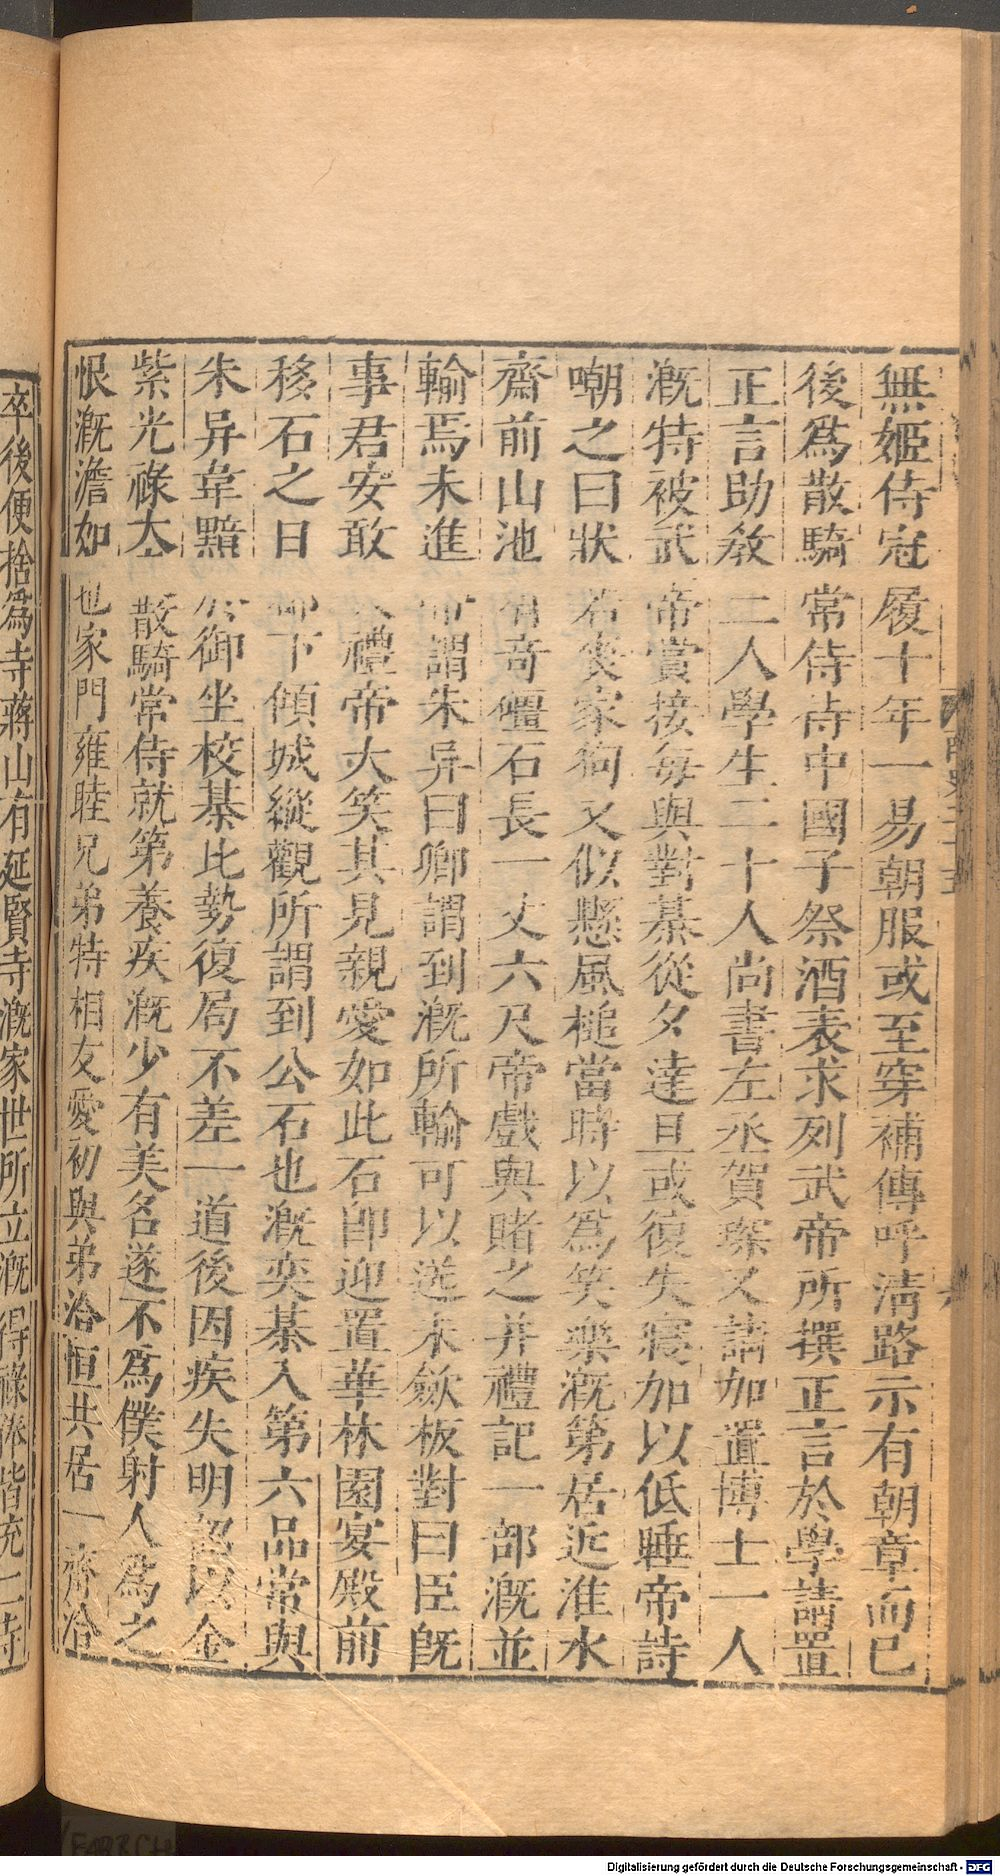 無姬侍冠履十年一易朝服或至穿補傳呼清路示有朝章而已
後爲散騎常侍侍中國子祭酒表求列武帝所撰正言於學請置
正言助教二人學生二十人尚書左丞賀琛又請加置博士一人
漑特被武帝賞接每與對棊從夕達旦或復失寢加以低睡帝詩
嘲之曰狀若喪家狗又似懸風槌當時以爲笑樂漑第居近淮水
齋前山池有奇礓石長一丈六尺帝戲與賭之并禮記一部漑並
輸焉未進帝謂朱异曰卿謂到漑所輸可以送未歛板對曰臣旣
事君安敢失禮帝大笑其見親愛如此石卽迎置華林園宴殿前
移石之日都下傾城縱觀所謂到公石也漑奕棊入第六品常與
朱异韋黯於御坐校棊比勢復局不差一道後因疾失明詔以金
紫光祿大散騎常侍就第養疾漑少有美名遂不爲僕射人爲之
恨漑澹如也家門雍睦兄弟特相友愛初與弟洽恒共居一齋洽
卒後便捨爲寺蔣山有延賢寺漑家世所立漑得祿俸皆充二寺
Digitalisierung gefördert durch die Deutsche Forschungsgemeinschaft - DFG